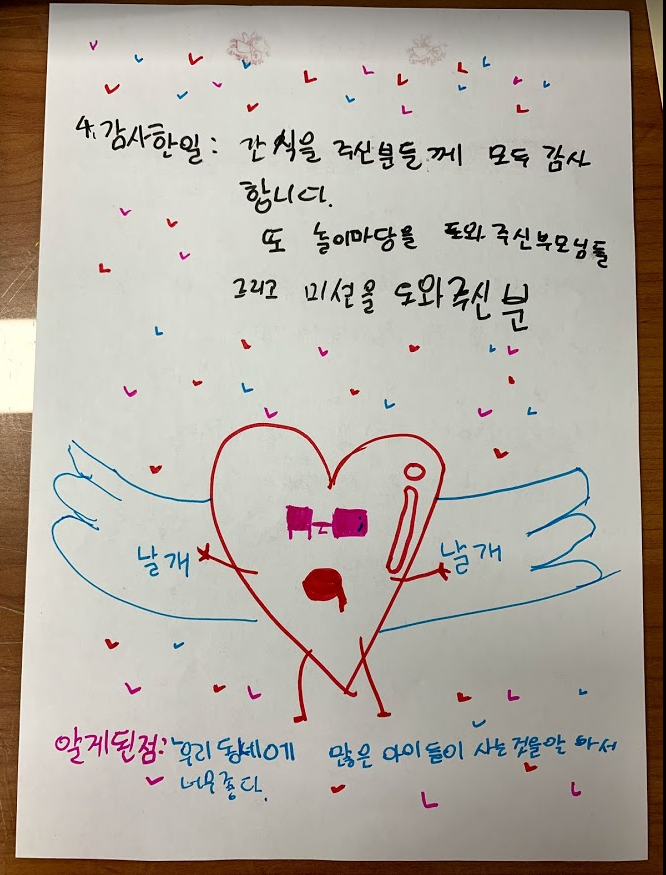 4. 감사한일: 간식을 주신분들께 모두 감사
합니다.
또 놀이마당을 도와주신부모님들
그리고 미션을 도와주신 분
날개
날개
알게된점: 우리 동네에 많은 아이들이 사는것을알 아서
너무좋다.